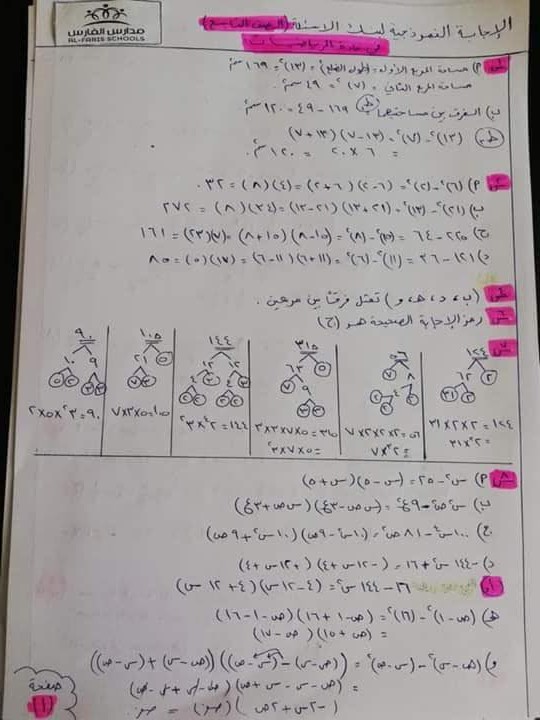 مدارس الفارس
AL-FARIS SCHOOLS
الإجابة النموذجية لبنك الاسئلة (الصف التاسع)
في مادة الرياضيات
س١ ٢) مساحة المربع الأول = (طول الضلع)² = (١٣)² = ١٦٩ سم²
مساحة المربع الثاني = (٧)² = ٤٩ سم².
ب) الفرق بين مساحتيهما ١٦٩ - ٤٩ = ١٢٠ سم²
(١٣)² - (٧)² = (١٣-٧)(١٣+٧)
= ٦ × ٢٠ = ١٢٠ سم².
٢) (٦)² - (٢)² = (٦-٢)(٦+٢) = (٤)(٨) = ٣٢.
ب) (٢١)² - (١٣)² = (٢١-١٣)(٢١+١٣) = (٣٤)(٨) = ٢٧٢
ج) ٢٢٥ - ٦٤ = (١٥)² - (٨)² = (١٥-٨)(١٥+٨) = (٧)(٢٣) = ١٦١
د) ١٢١ - ٣٦ = (١١)² - (٦)² = (١١+٦)(١١-٦) = (١٧)(٥) = ٨٥
(ب، د، هـ، و) تمثل فرقاً بين مربعين.
رمز الإجابة الصحيحة هو (ج)
١٢٤ ٥٦ ٣١٥ ١٤٤ ١٠٥ ٩٠
٦٢ ٢ ٨ ٧ ٦٣ ٥ ١٢ ١٢ ٢١ ٥ ١٠ ٩
١٢٤ = ٢×٢×٣١
= ٢²×٣١
٥٦ = ٢×٢×٢×٧
= ٢³×٧
٣١٥ = ٥×٧×٣×٣
= ٥×٧×٣²
١٤٤ = ٢⁴×٣²
١٠٥ = ٥×٣×٧
٩٠ = ٣²×٥×٢
س٨ ٢) س² - ٢٥ = (س - ٥)(س + ٥)
ج) ١٠٠س² - ٨١ص² = (١٠س - ٩ص)(١٠س + ٩ص)
د) -١٤٤س² + ١٦ = (-١٢س + ٤)(+١٢س + ٤)
١٦ - ١٤٤س² = (٤ - ١٢س)(٤ + ١٢س)
هـ) (ص - ١)² - (١٦)² = (ص - ١ + ١٦)(ص - ١ - ١٦)
= (ص + ١٥)(ص - ١٧)
و) (ص - س)² - (س - ص)² = ((ص - س) - (س - ص))((ص - س) + (س - ص))
= (ص - س - س + ص)(ص - س + س - ص)
(-٢س + ٢ص)(صفر) = صفر
صفحة
١